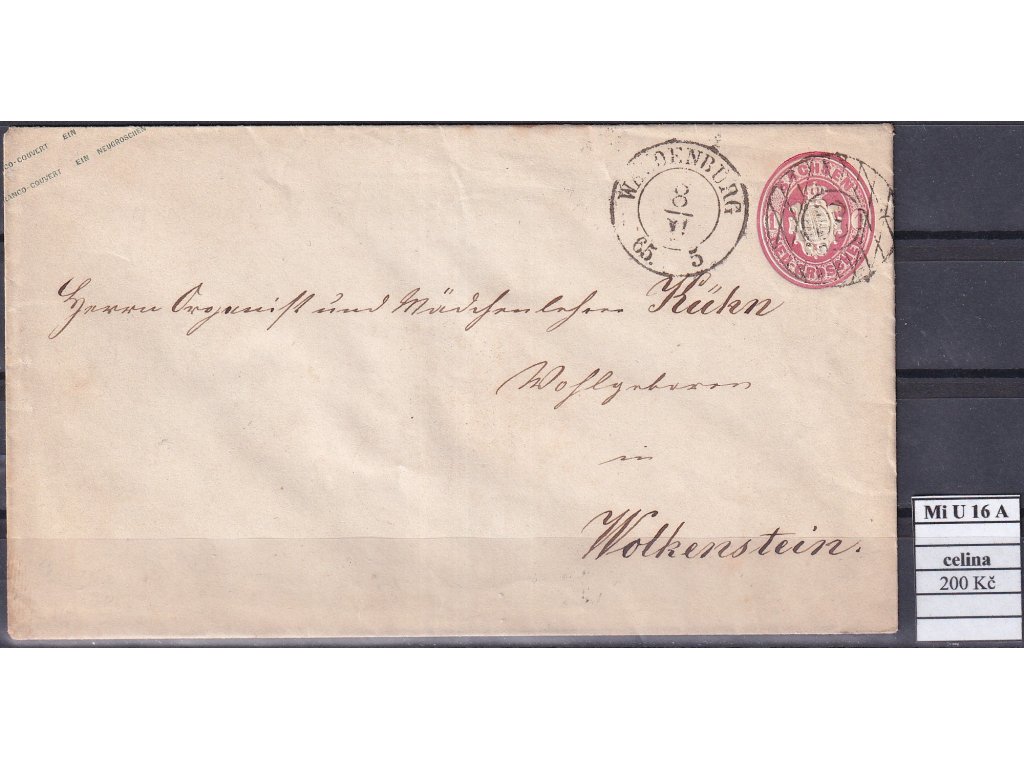 NCO-COUVERT EIN
RANCO-COUVERT EIN NEUGROSCHEN
WALDENBURG
8
VI
65. 5
SACHSEN
NEUGROSCHEN
Herrn Organist und Mädchenlehrer Kühn
Wohlgeboren
in
Wolkenstein.
Mi U 16 A
celina
200 Kč